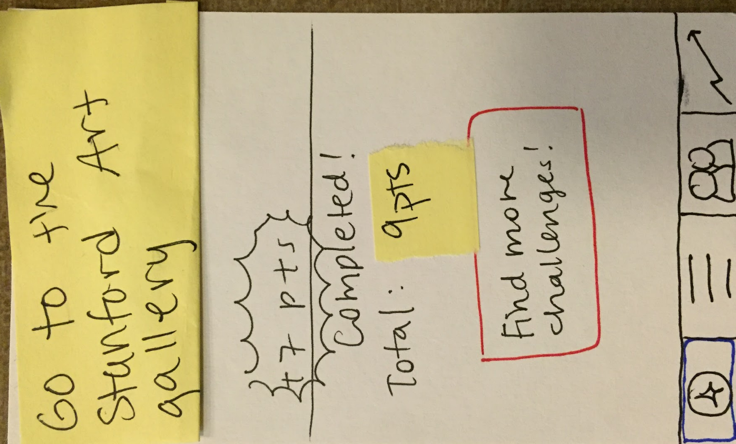 Go to the
Stanford Art
gallery
+7 pts
Completed!
Total: 9 pts
Find more
challenges!